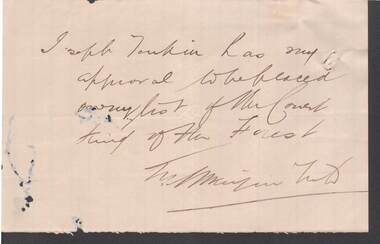 Joseph Tonkin has my
approval to be placed
on my list of the Court
King of the Forest